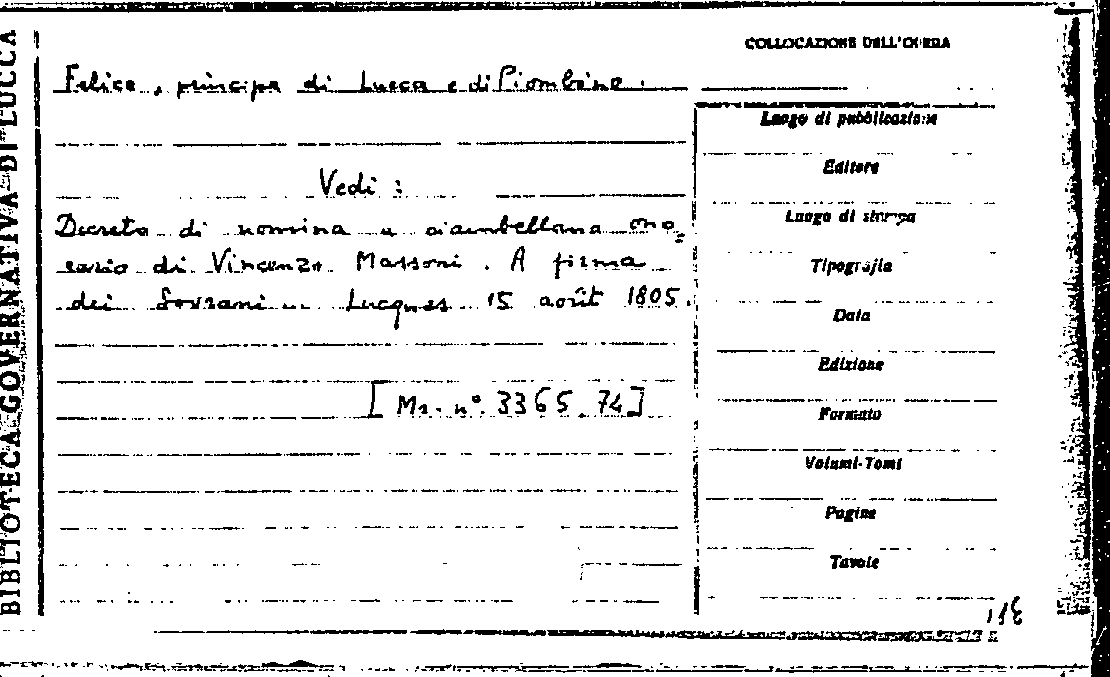 BIBLIOTECA GOVERNATIVA DI LUCCA
COLLOCAZIONE DELL'OPERA
Felice, principe di Lucca e di Piombino.
Vedi:
Decreto di nomina a ciambellano ono=
rario di Vincenzo Massoni. A firma
dei Sovrani. Lucques 15 août 1805.
[Ms. n° 3365.74]
Luogo di pubblicazione
Editore
Luogo di stampa
Tipografia
Data
Edizione
Formato
Volumi-Tomi
Pagine
Tavole